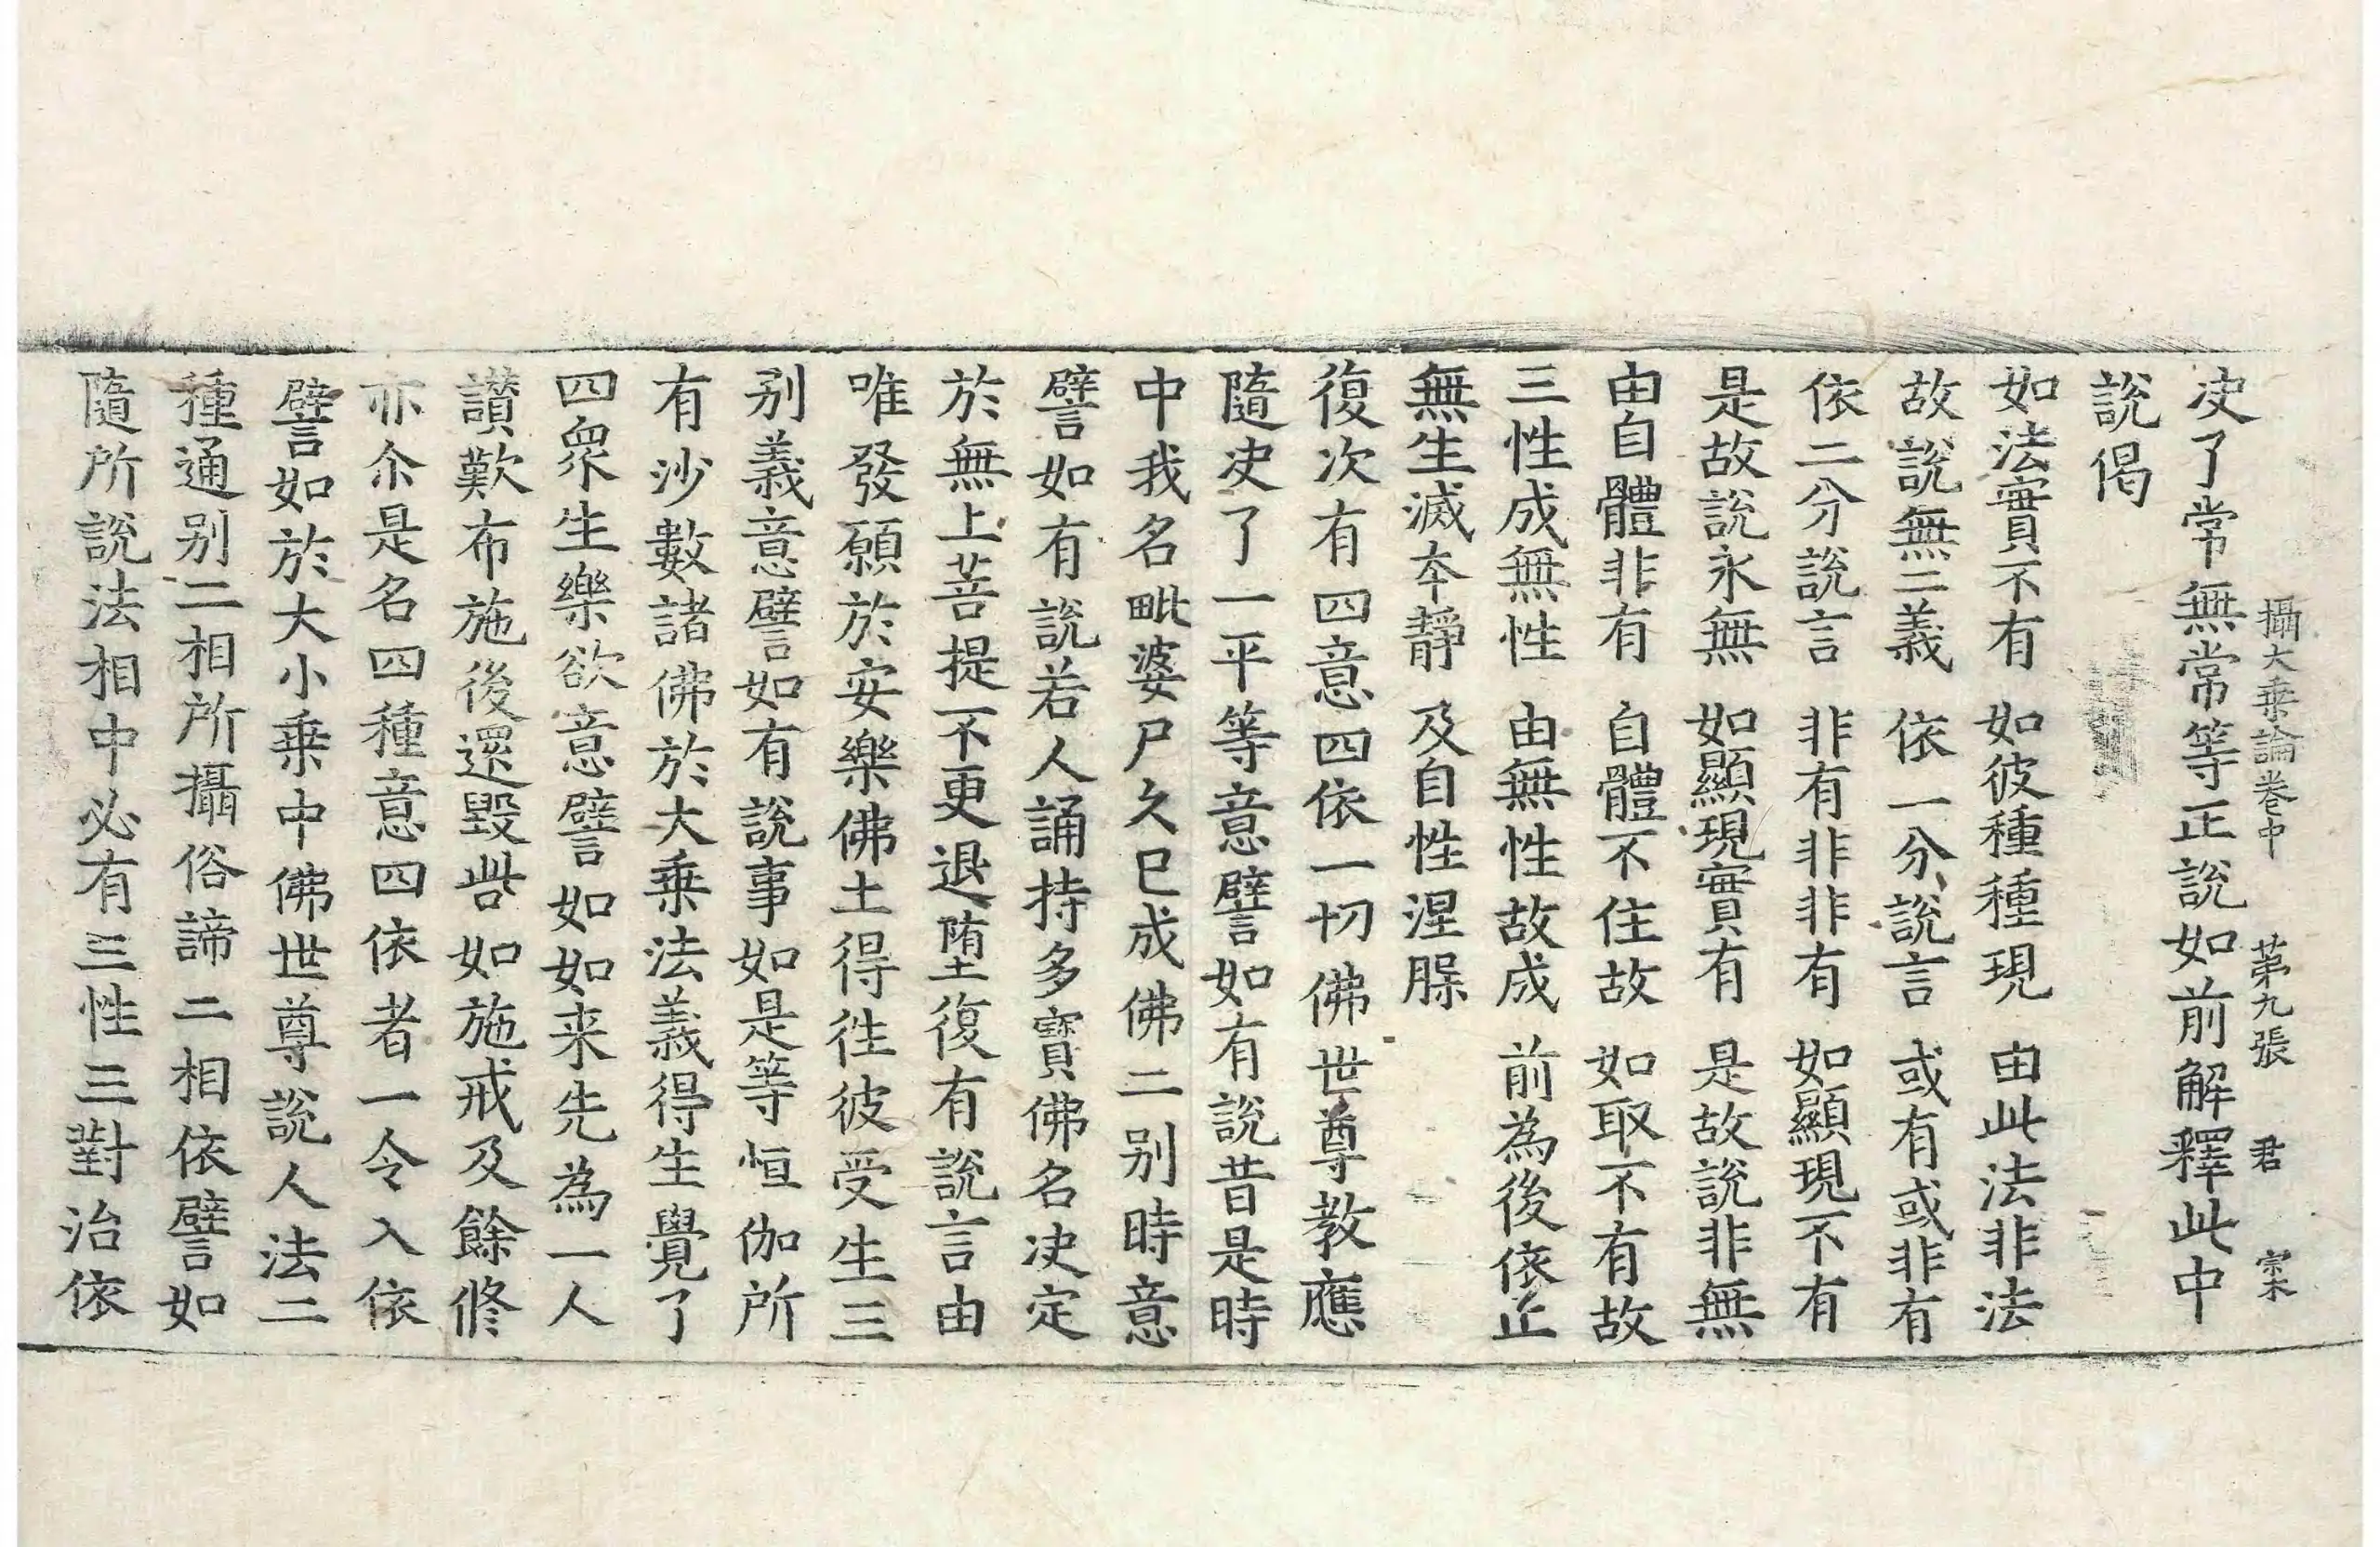 攝大乘論卷中 第九張 君 㝐
决了常無常等正說如前解釋此中
說偈
如法實不有 如彼種種現 由此法非法
故說無二義 依一分說言 或有或非有
依二分說言 非有非非有 如顯現不有
是故說永無 如顯現實有 是故說非無
由自體非有 自體不住故 如取不有故
三性成無性 由無性故成 前為後依止
無生滅本靜 及自性涅槃
復次有四意四依一切佛世尊教應
隨决了一平等意譬如有說昔是時
中我名毗婆尸久已成佛二别時意
譬如有說若人誦持多寶佛名决定
於無上菩提不更退墮復有說言由
唯發願於安樂佛土得徃彼受生三
别義意譬如有說事如是等恒伽所
有沙數諸佛於大乗法義得生覺了
四衆生樂欲意譬如如来先為一人
讃歎布施後還毀呰如施戒及餘修
亦尒是名四種意四依者一令入依
譬如於大小乗中佛世尊說人法二
種通别二相所攝俗諦二相依譬如
隨所說法相中必有三性三對治依